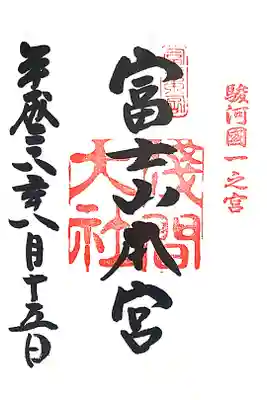 駿河國一之宮
富士山本宮
淺間
大社
平成二六年八月十五日